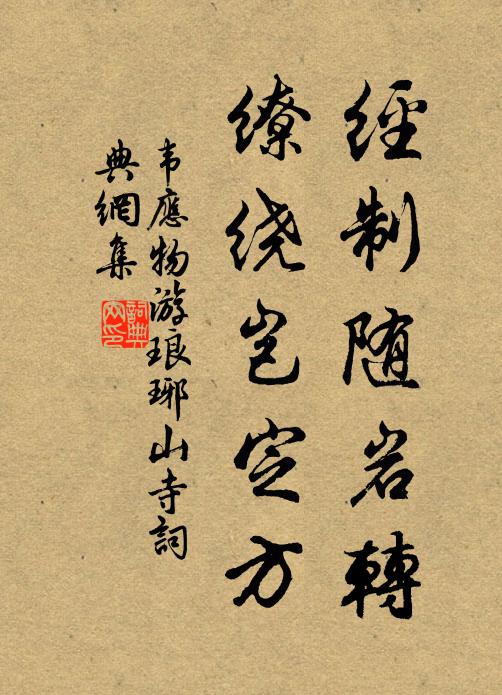 經制随岩轉
缭绕岂定方
韦應物游琅琊山寺詞
典網集
詞典
网印